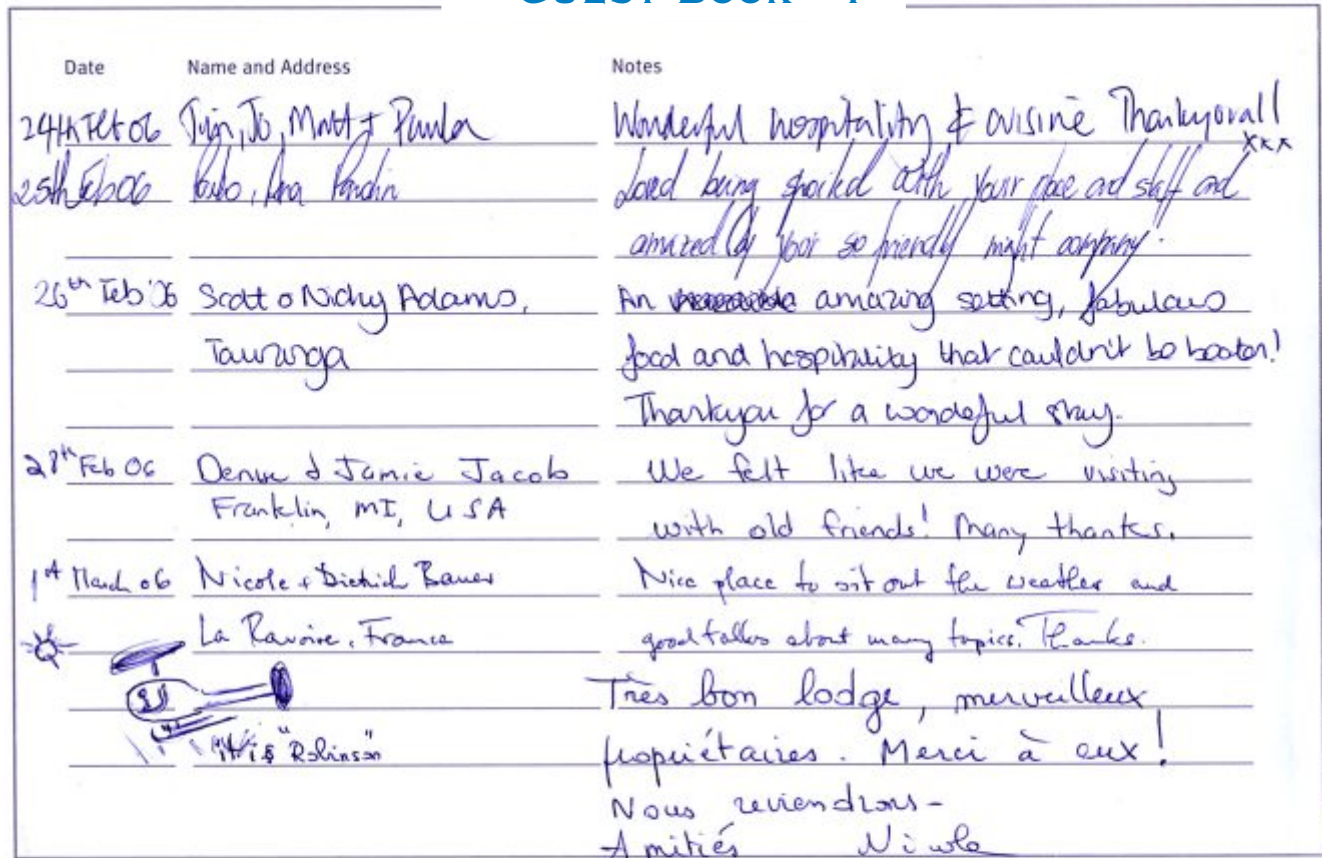 GUEST BOOK
Date Name and Address Notes
24th Feb 06 Jo, Matt & Paula Wonderful hospitality & cuisine Thankyou all
xxx
25th Feb 06 Paulo, Ana Loved being spoiled with your place and staff and
amazed by your so friendly night company.
26th Feb '06 Scott & Nicky Adams, An amazing setting, fabulous
Tauranga food and hospitality that couldn't be beaten!
Thankyou for a wonderful stay.
28th Feb 06 Denise & Jamie Jacob We felt like we were visiting
Franklin, MI, USA with old friends! Many thanks.
1st March 06 Nicole + Dietrich Bauer Nice place to sit out the weather and
La Ravoire, France good talks about many topics. Thanks.
Très bon lodge, merveilleux
"Robinson" propriétaires. Merci à eux!
Nous reviendrons -
Amitiés Nicole